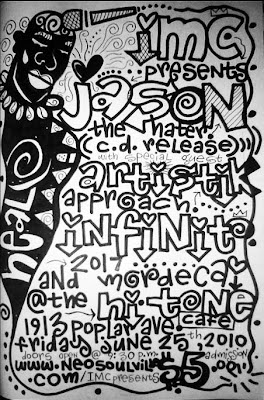 imc
presents
jason
the hater
((c.d. release))
with special guest
artistik
approach
infinito
2017
and mordecai
@ the hi-tone
cafe
1913 poplar ave.
friday june 25th, 2010
doors open @ 9:30 p.m. $5.00 admission
www.neosoulville
.com/IMCpresents
heal